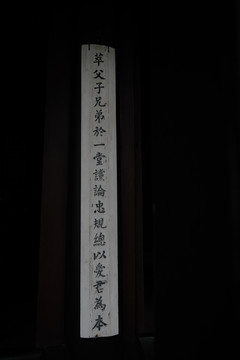 萃父子兄弟於一堂謹論忠規總以愛君為本